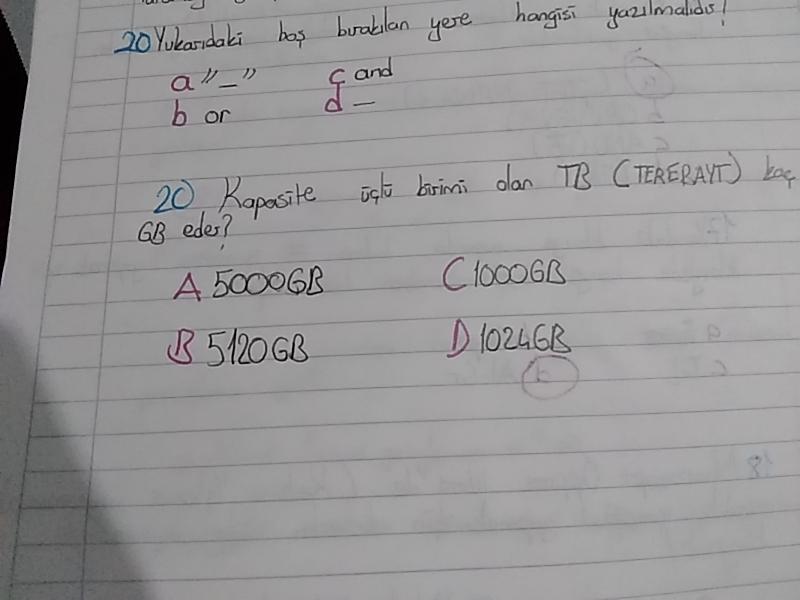 20 Yukarıdaki boş bırakılan yere hangisi yazılmalıdır!
a "_" ç and
b or d _
20 Kapasite üçlü birimi olan TB (TEREBAYT) kaç
GB eder?
A 5000GB C 1000GB
B 5120GB D 1024GB